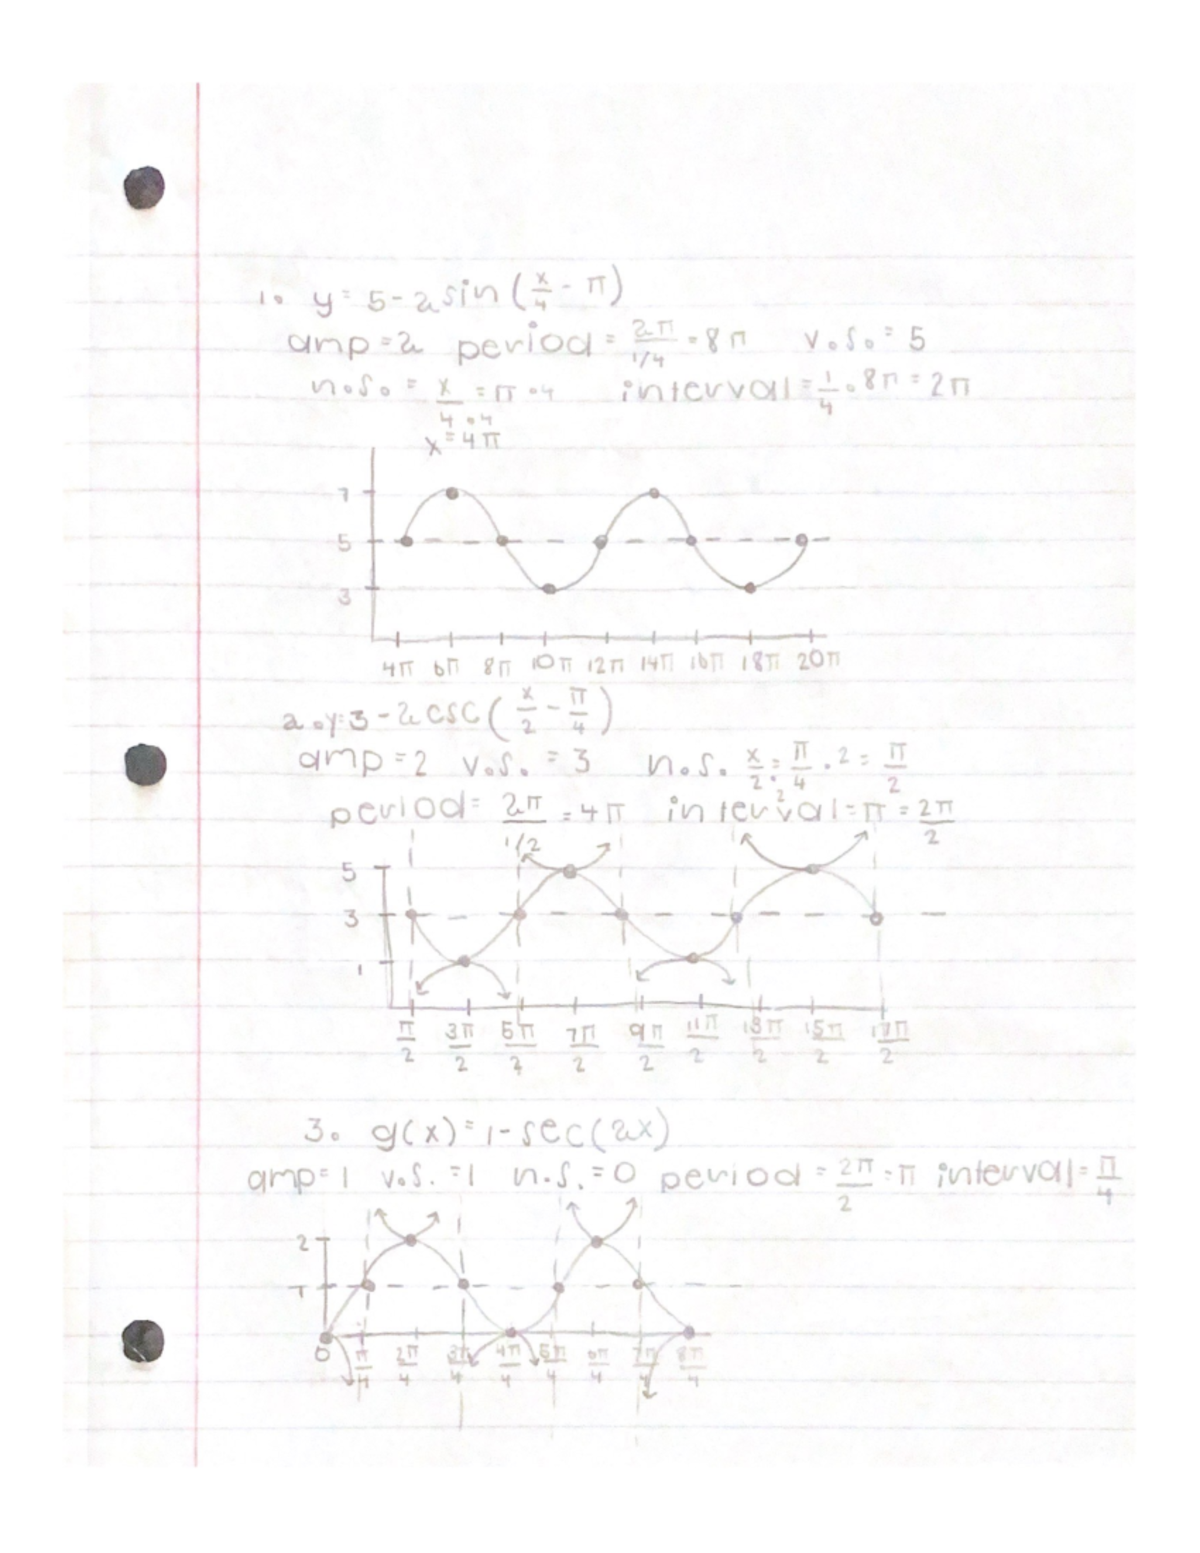 1. y = 5 - 2 sin (x/4 - π)
amp = 2 period = 2π/1/4 = 8π v.s. = 5
h.s. = x/4 · 4 = π · 4 interval = 1/4 · 8π = 2π
x = 4π
7
5
3
4π 6π 8π 10π 12π 14π 16π 18π 20π
2. y = 3 - 2 csc (x/2 - π/4)
amp = 2 v.s. = 3 h.s. x/2 · 2 = π/4 · 2 = π/2
period = 2π/1/2 = 4π interval = π = 2π/2
5
3
1
π/2 3π/2 5π/2 7π/2 9π/2 11π/2 13π/2 15π/2 17π/2
3. g(x) = 1 - sec(2x)
amp = 1 v.s. = 1 h.s. = 0 period = 2π/2 = π interval = π/4
2
1
0 π/4 2π/4 3π/4 4π/4 5π/4 6π/4 7π/4 8π/4